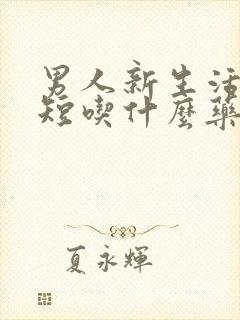 男人新生活
短喫什麼藥
夏永輝